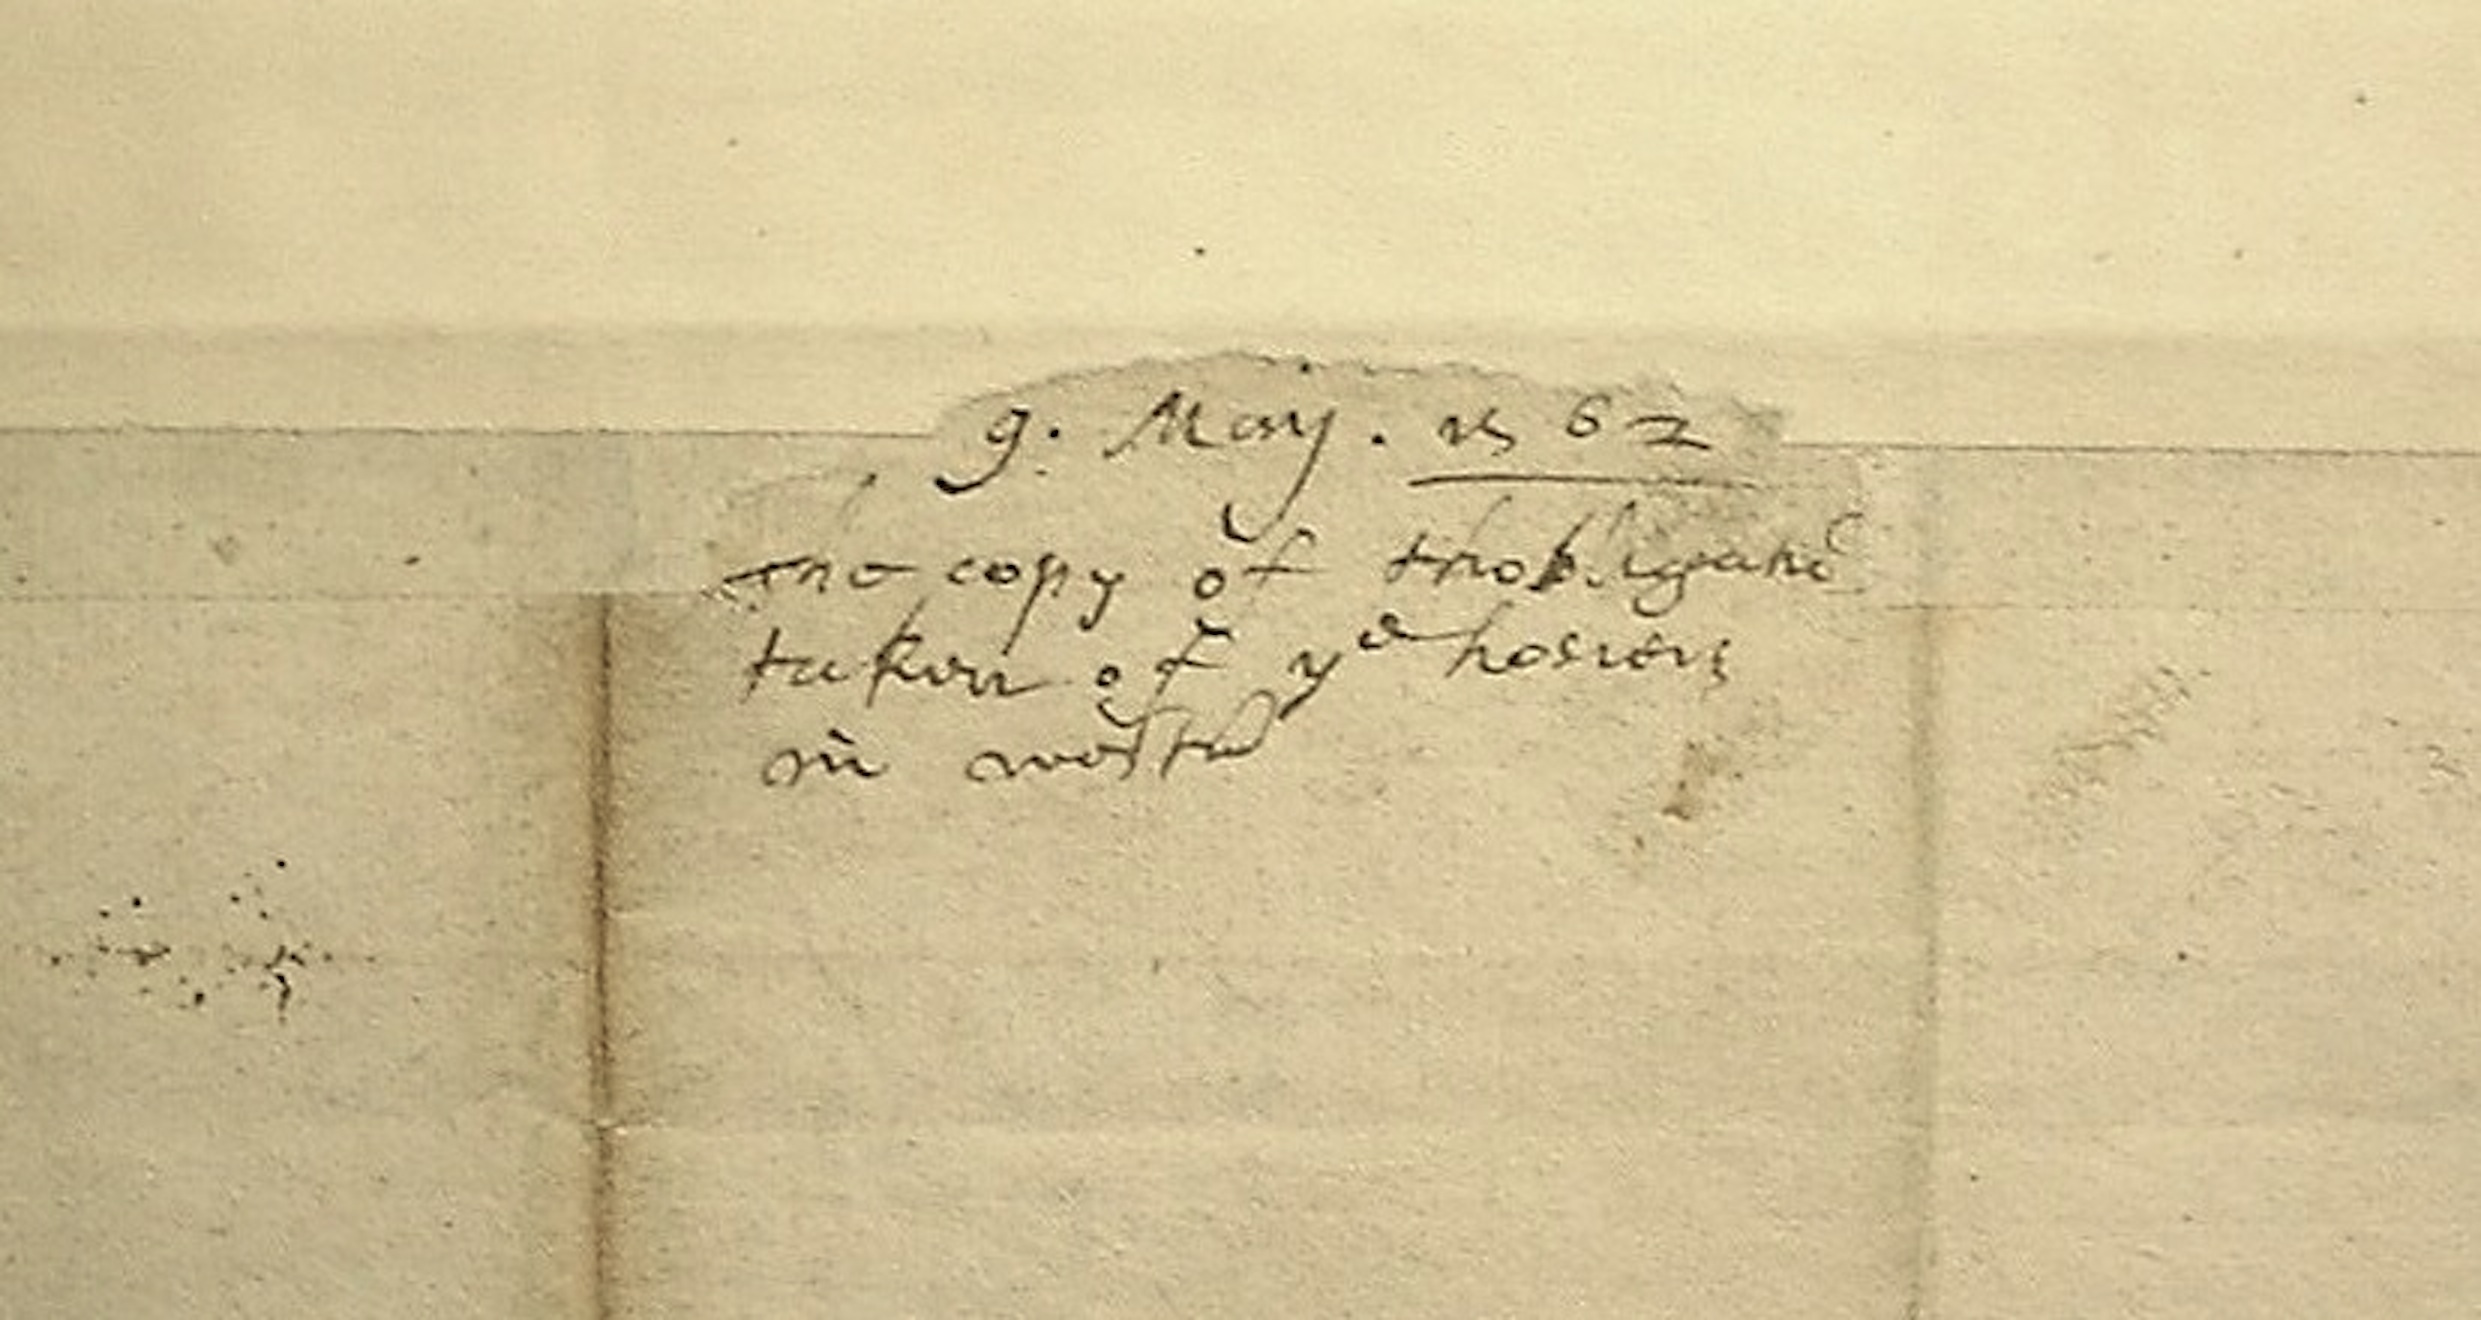 9. May. 1562
The copy of thobligacio
taken of yͤ hosiers
in westm